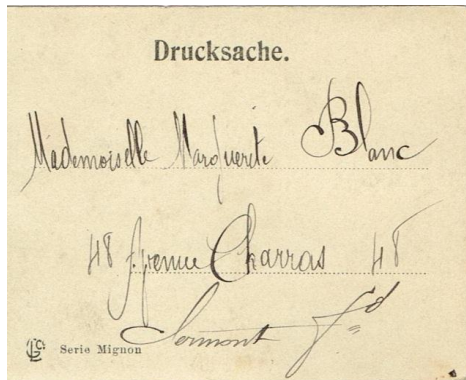 Drucksache.
Mademoiselle Marguerite Blanc
48 Avenue Charras 48
Clermont Fd
Serie Mignon